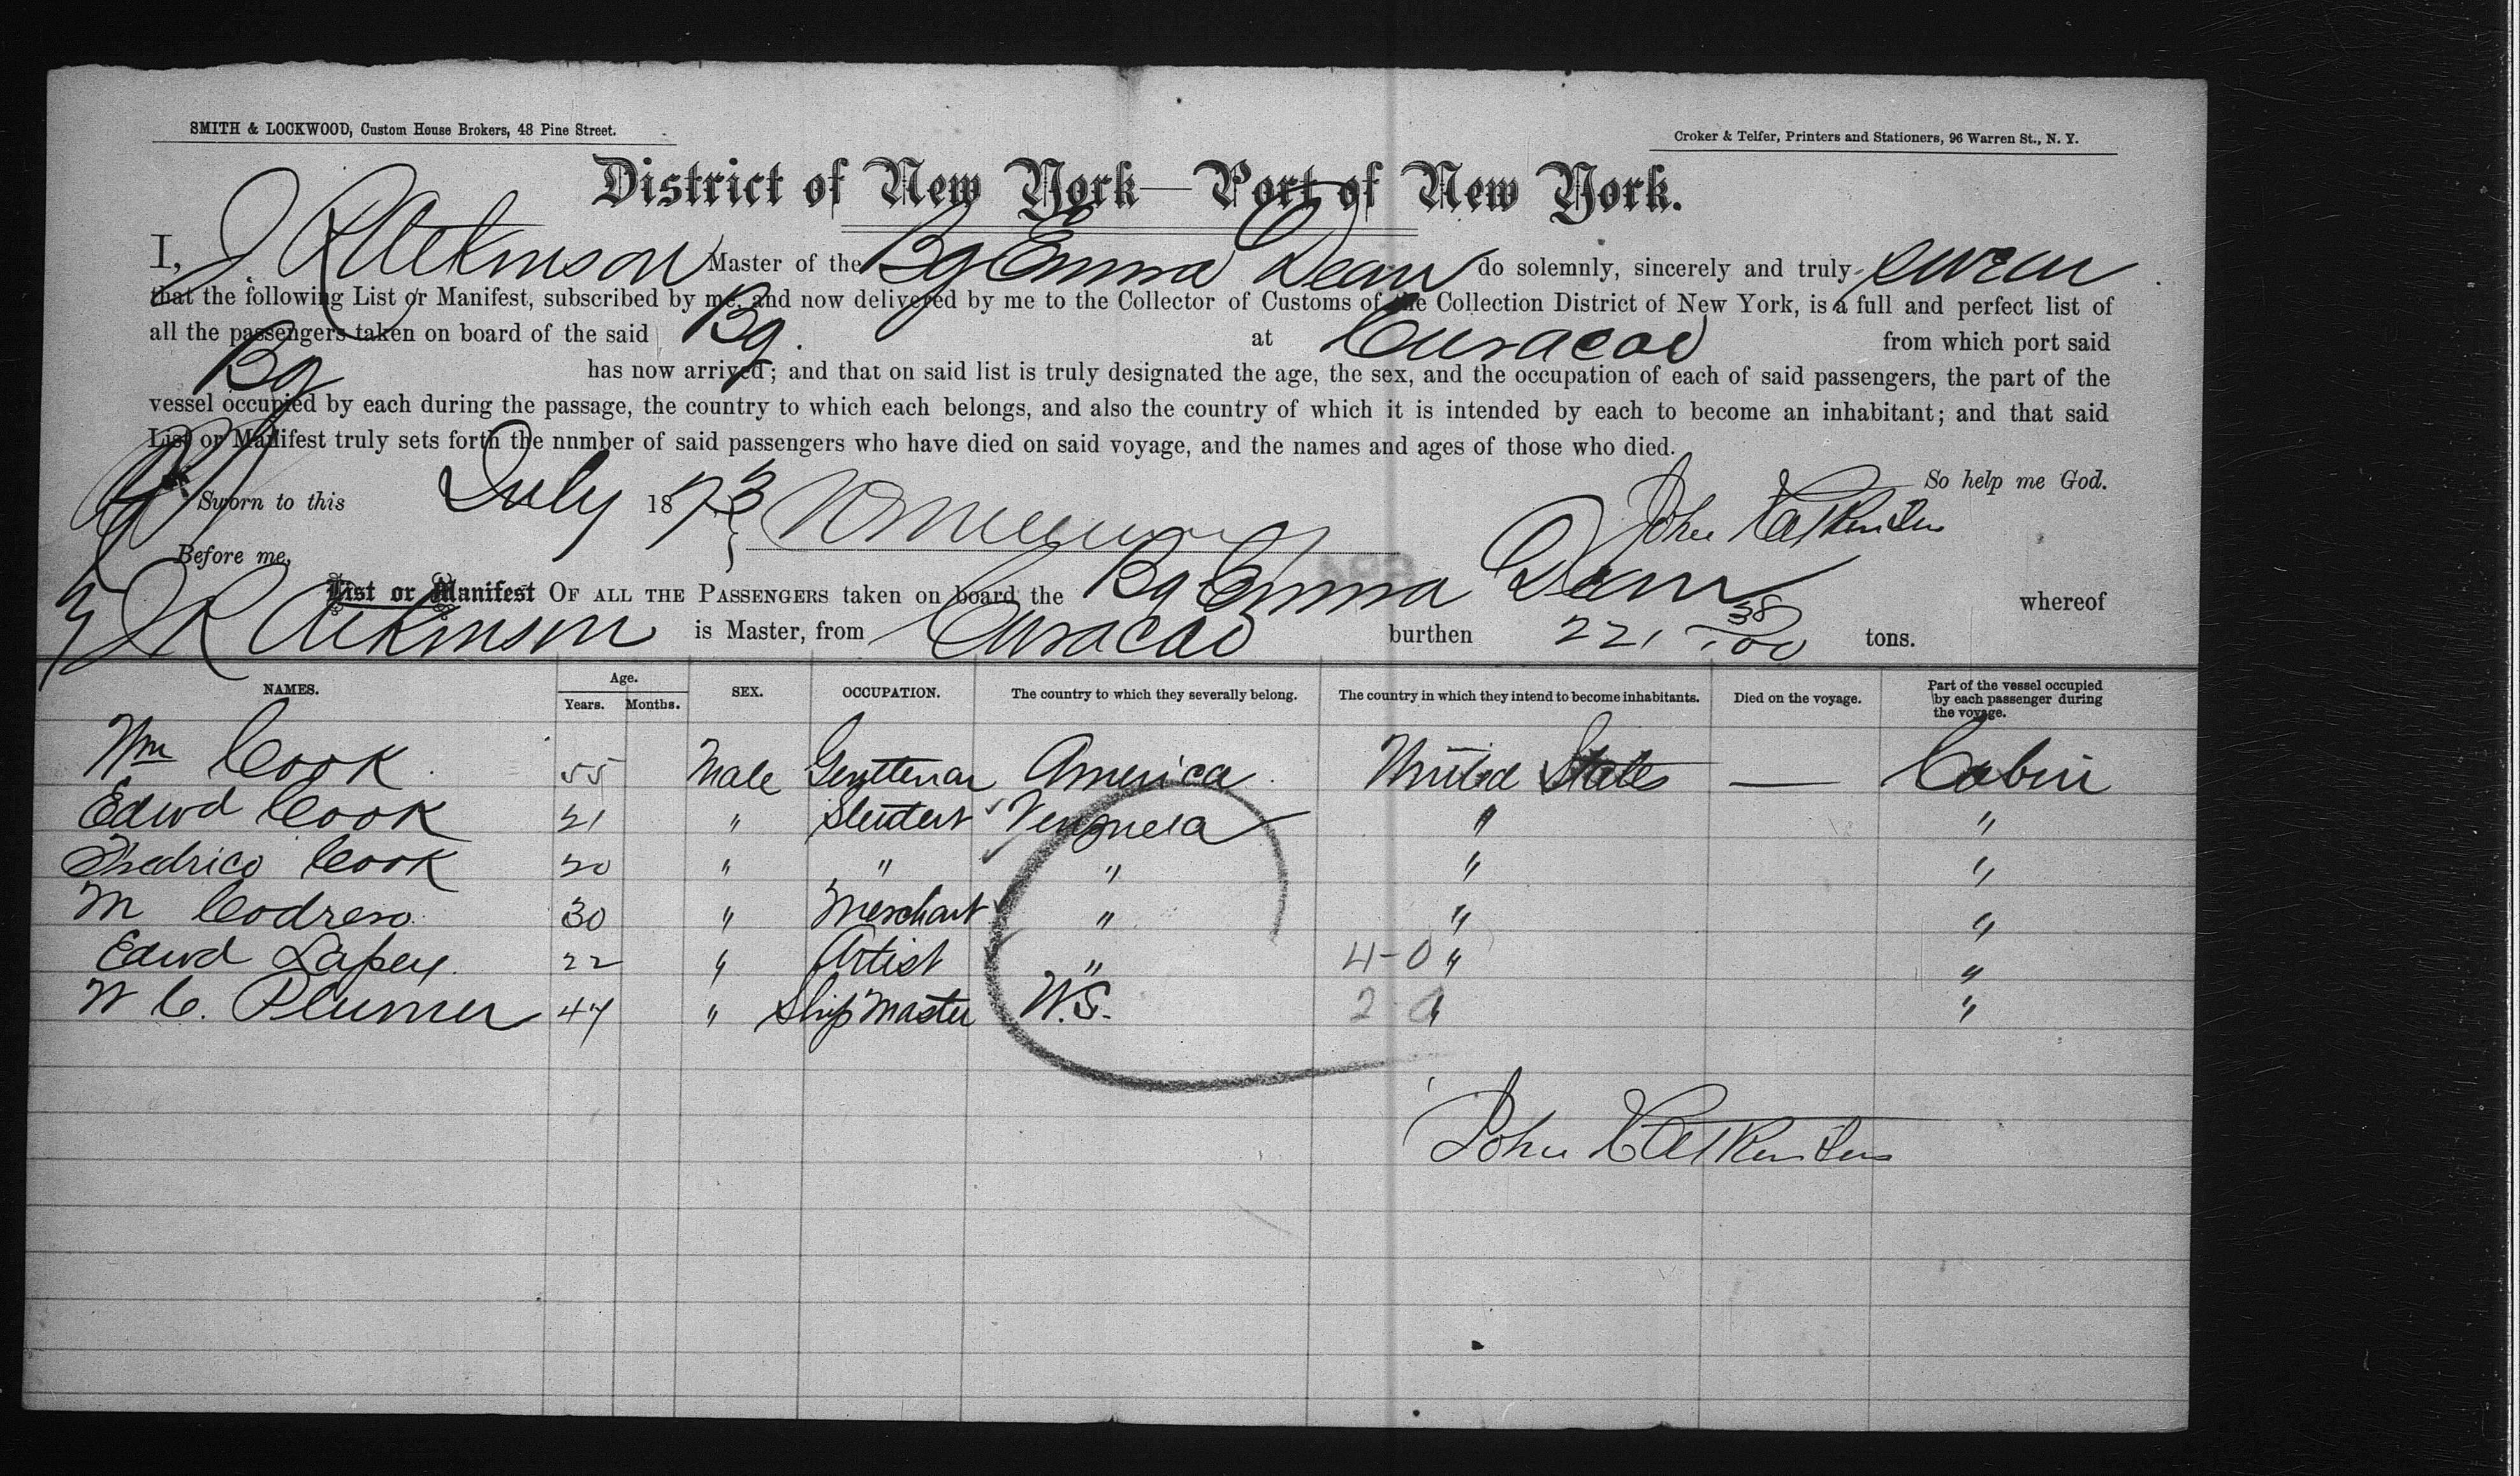 SMITH & LOCKWOOD, Custom House Brokers, 48 Pine Street.
Croker & Telfer, Printers and Stationers, 96 Warren St., N. Y.
District of New York—Port of New York.
I, J R Atkinson Master of the Bg Emma Dean do solemnly, sincerely and truly swear
that the following List or Manifest, subscribed by me, and now delivered by me to the Collector of Customs of the Collection District of New York, is a full and perfect list of
all the passengers taken on board of the said Bg. at Curacao from which port said
Bg has now arrived; and that on said list is truly designated the age, the sex, and the occupation of each of said passengers, the part of the
vessel occupied by each during the passage, the country to which each belongs, and also the country of which it is intended by each to become an inhabitant; and that said
List or Manifest truly sets forth the nnmber of said passengers who have died on said voyage, and the names and ages of those who died.
So help me God.
Sworn to this July 1873 John R Atkinson
Before me,
List or Manifest OF ALL THE PASSENGERS taken on board the Bg Emma Dean whereof
J R Atkinson is Master, from Curacao burthen 221 38/100 tons.
NAMES. Age. Years. Months. SEX. OCCUPATION. The country to which they severally belong. The country in which they intend to become inhabitants. Died on the voyage. Part of the vessel occupied by each passenger during the voyage.
Wm Cook 55 Male Gentleman America United States — Cabin
Edwd Cook 21 " Student Venzuela " "
Fredrico Cook 20 " " " " "
M Codreso 30 " Merchant " " "
Edwd Lapey 22 " Artist " 4-0 " "
W C. Plumer 47 " Ship Master U.S. 2-0 " "
John R Atkinson